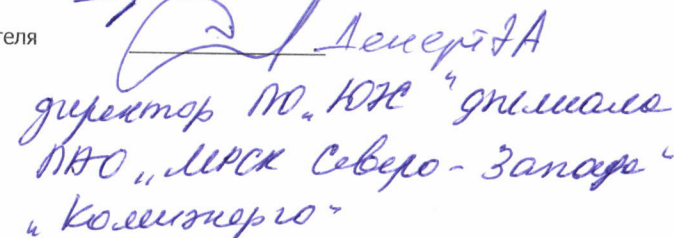 теля Декерт ЭА
директор ПО „ЮЭС" филиала
ПАО „МРСК Северо-Запада"
„Комиэнерго"